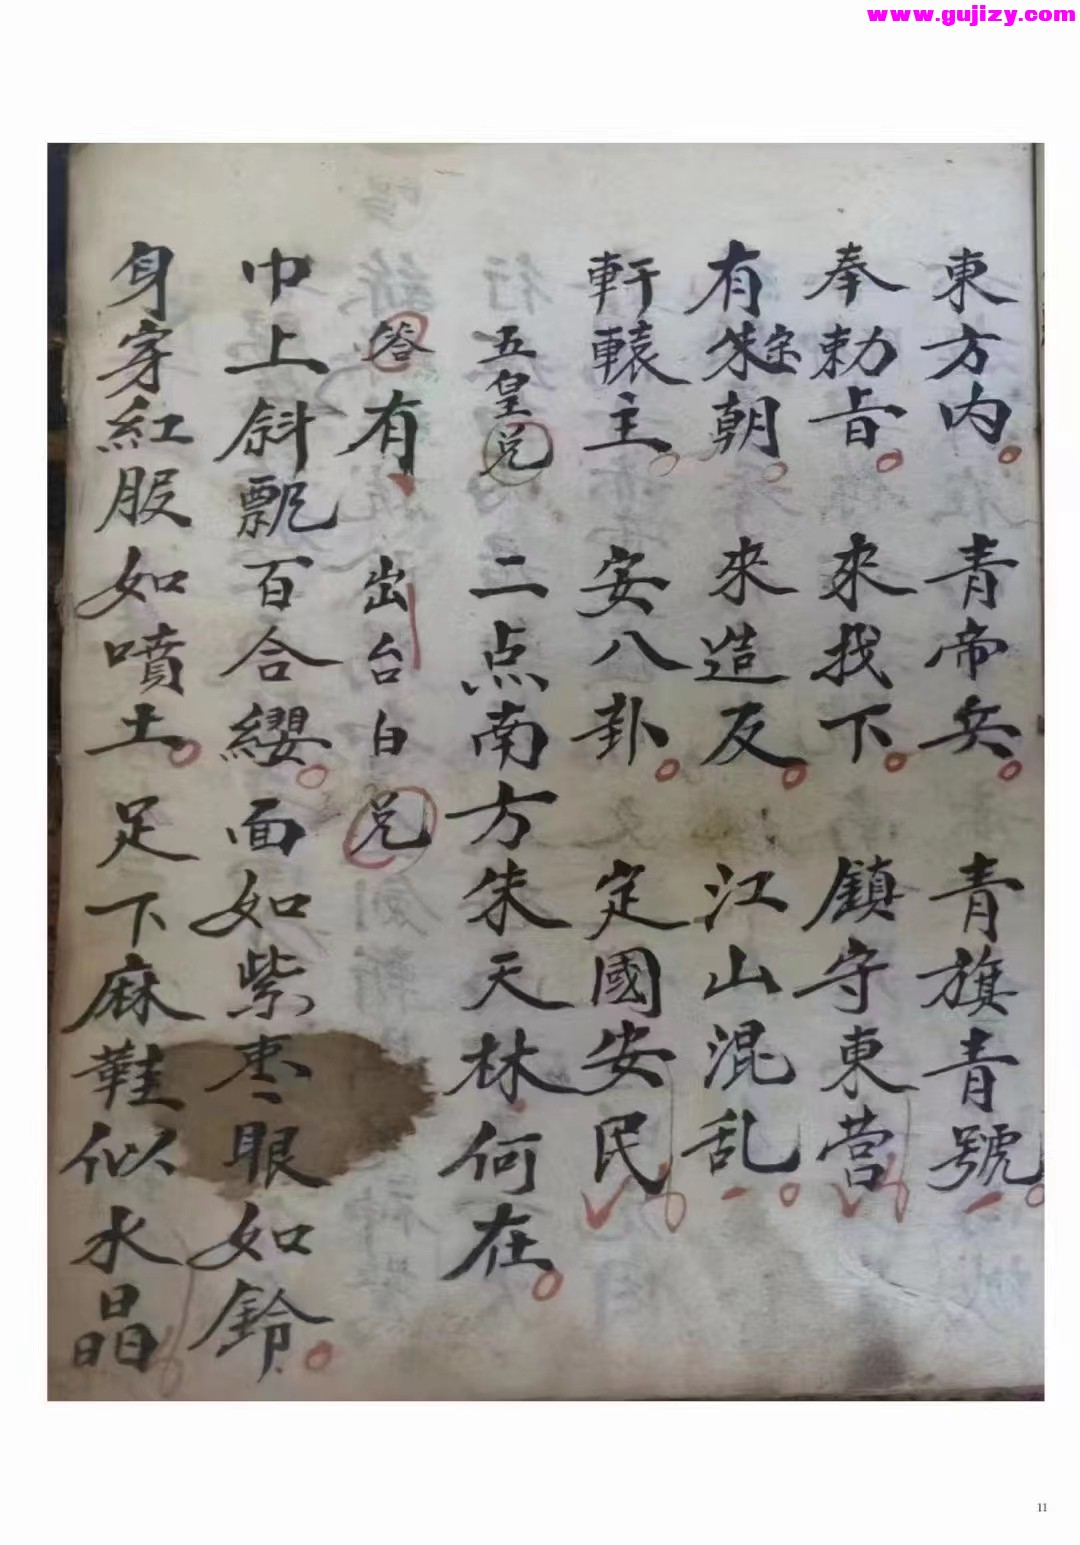 www.gujizy.com
東方内。青帝兵。青旗青號。
奉勅旨。來找下。鎮守東营
有朱宝朝。來造反。江山混乱。
軒轅主。安八卦。定國安民
五皇兑 二点南方朱天林何在。
答有 出台白兑
巾上斜飄百合纓。面如紫枣眼如鈴。
身穿紅服如噴土。足下麻鞋似水晶
11